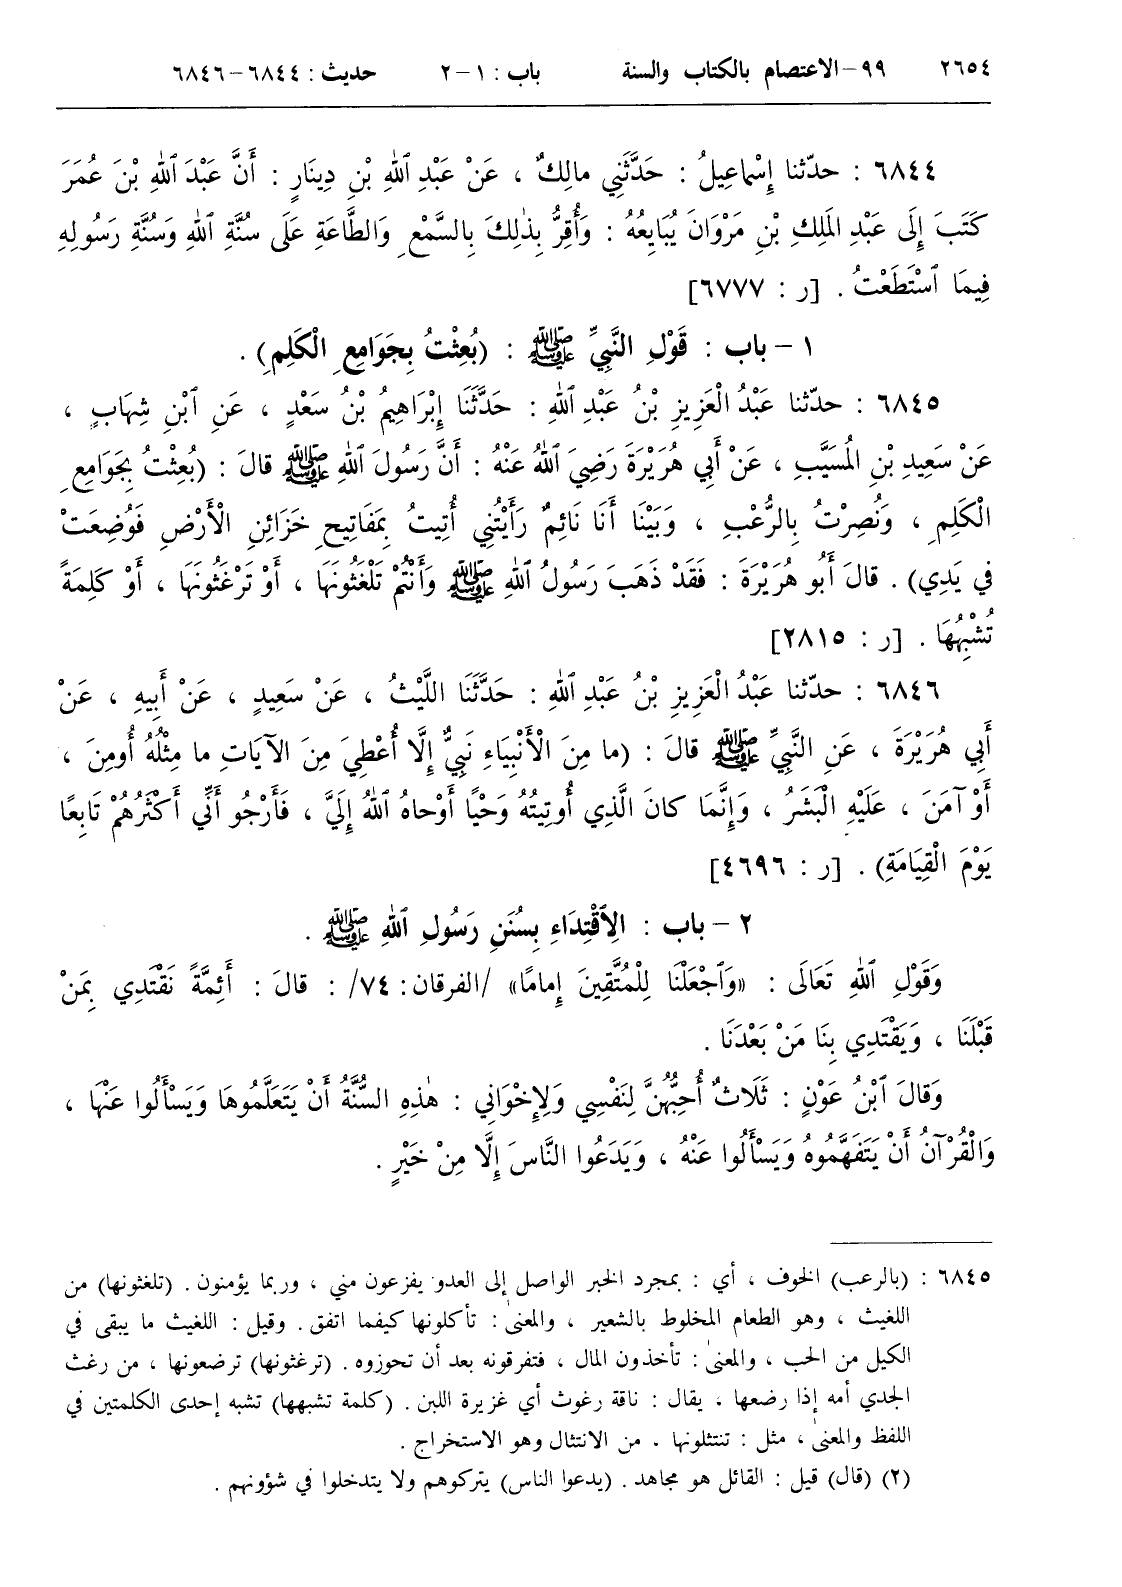 ٢٦٥٤ ٩٩-الاعتصام بالكتاب والسنة باب : ١-٢ حديث : ٦٨٤٤-٦٨٤٦
٦٨٤٤ : حدّثنا إِسْماعِيلُ : حَدَّثَنِي مالِكٌ ، عَنْ عَبْدِ ٱللهِ بْنِ دِينَارٍ : أَنَّ عَبْدَ ٱللهِ بْنَ عُمَرَ
كَتَبَ إِلَى عَبْدِ المَلِكِ بْنِ مَرْوَانَ يُبَايِعُهُ : وَأُقِرُّ بِذٰلِكَ بِالسَّمْعِ وَالطَّاعَةِ عَلَى سُنَّةِ ٱللهِ وَسُنَّةِ رَسُولِهِ
فِيمَا ٱسْتَطَعْتُ . [ر : ٦٧٧٧]
١ - باب : قَوْلِ النَّبِيِّ ﷺ : (بُعِثْتُ بِجَوَامِعِ الْكَلِمِ) .
٦٨٤٥ : حدّثنا عَبْدُ الْعَزِيزِ بْنُ عَبْدِ ٱللهِ : حَدَّثَنَا إِبْرَاهِيمُ بْنُ سَعْدٍ ، عَنِ ٱبْنِ شِهَابٍ ،
عَنْ سَعِيدِ بْنِ المُسَيَّبِ ، عَنْ أَبِي هُرَيْرَةَ رَضِيَ ٱللهُ عَنْهُ : أَنَّ رَسُولَ ٱللهِ ﷺ قالَ : (بُعِثْتُ بِجَوَامِعِ
الْكَلِمِ ، وَنُصِرْتُ بِالرُّعْبِ ، وَبَيْنَا أَنَا نَائِمٌ رَأَيْتُنِي أُتِيتُ بِمَفَاتِيحِ خَزَائِنِ الْأَرْضِ فَوُضِعَتْ
في يَدِي) . قالَ أَبُو هُرَيْرَةَ : فَقَدْ ذَهَبَ رَسُولُ ٱللهِ ﷺ وَأَنْتُمْ تَلْغَثُونَهَا ، أَوْ تَرْغَثُونَهَا ، أَوْ كَلِمَةً
تُشْبِهُهَا . [ر : ٢٨١٥]
٦٨٤٦ : حدّثنا عَبْدُ الْعَزِيزِ بْنُ عَبْدِ ٱللهِ : حَدَّثَنَا اللَّيْثُ ، عَنْ سَعِيدٍ ، عَنْ أَبِيهِ ، عَنْ
أَبِي هُرَيْرَةَ ، عَنِ النَّبِيِّ ﷺ قالَ : (ما مِنَ الْأَنْبِيَاءِ نَبِيٌّ إِلَّا أُعْطِيَ مِنَ الآيَاتِ ما مِثْلُهُ أُومِنَ ،
أَوْ آمَنَ ، عَلَيْهِ الْبَشَرُ ، وَإِنَّمَا كانَ الَّذِي أُوتِيتُهُ وَحْيًا أَوْحاهُ ٱللهُ إِلَيَّ ، فَأَرْجُو أَنِّي أَكْثَرُهُمْ تَابِعًا
يَوْمَ الْقِيَامَةِ) . [ر : ٤٦٩٦]
٢ - باب : الِٱقْتِدَاءِ بِسُنَنِ رَسُولِ ٱللهِ ﷺ .
وَقَوْلِ ٱللهِ تَعَالَى : «وَٱجْعَلْنَا لِلْمُتَّقِينَ إِمامًا» /الفرقان: ٧٤/ : قالَ : أَئِمَّةً نَقْتَدِي بِمَنْ
قَبْلَنَا ، وَيَقْتَدِي بِنَا مَنْ بَعْدَنَا .
وَقالَ ٱبْنُ عَوْنٍ : ثَلَاثٌ أُحِبُّهُنَّ لِنَفْسِي وَلِإِخْوَانِي : هٰذِهِ السُّنَّةُ أَنْ يَتَعَلَّمُوهَا وَيَسْأَلُوا عَنْهَا ،
وَالْقُرْآنُ أَنْ يَتَفَهَّمُوهُ وَيَسْأَلُوا عَنْهُ ، وَيَدَعُوا النَّاسَ إِلَّا مِنْ خَيْرٍ .
٦٨٤٥ : (بالرعب) الخوف ، أي : بمجرد الخبر الواصل إلى العدو يفزعون مني ، وربما يؤمنون . (تلغثونها) من
اللغيث ، وهو الطعام المخلوط بالشعير ، والمعنىٰ : تأكلونها كيفما اتفق . وقيل : اللغيث ما يبقى في
الكيل من الحب ، والمعنىٰ : تأخذون المال ، فتفرقونه بعد أن تحوزوه . (ترغثونها) ترضعونها ، من رغث
الجدي أمه إذا رضعها ، يقال : ناقة رغوث أي غزيرة اللبن . (كلمة تشبهها) تشبه إحدى الكلمتين في
اللفظ والمعنىٰ ، مثل : تنتثلونها . من الانتثال وهو الاستخراج .
(٢) (قال) قيل : القائل هو مجاهد . (يدعوا الناس) يتركوهم ولا يتدخلوا في شؤونهم .